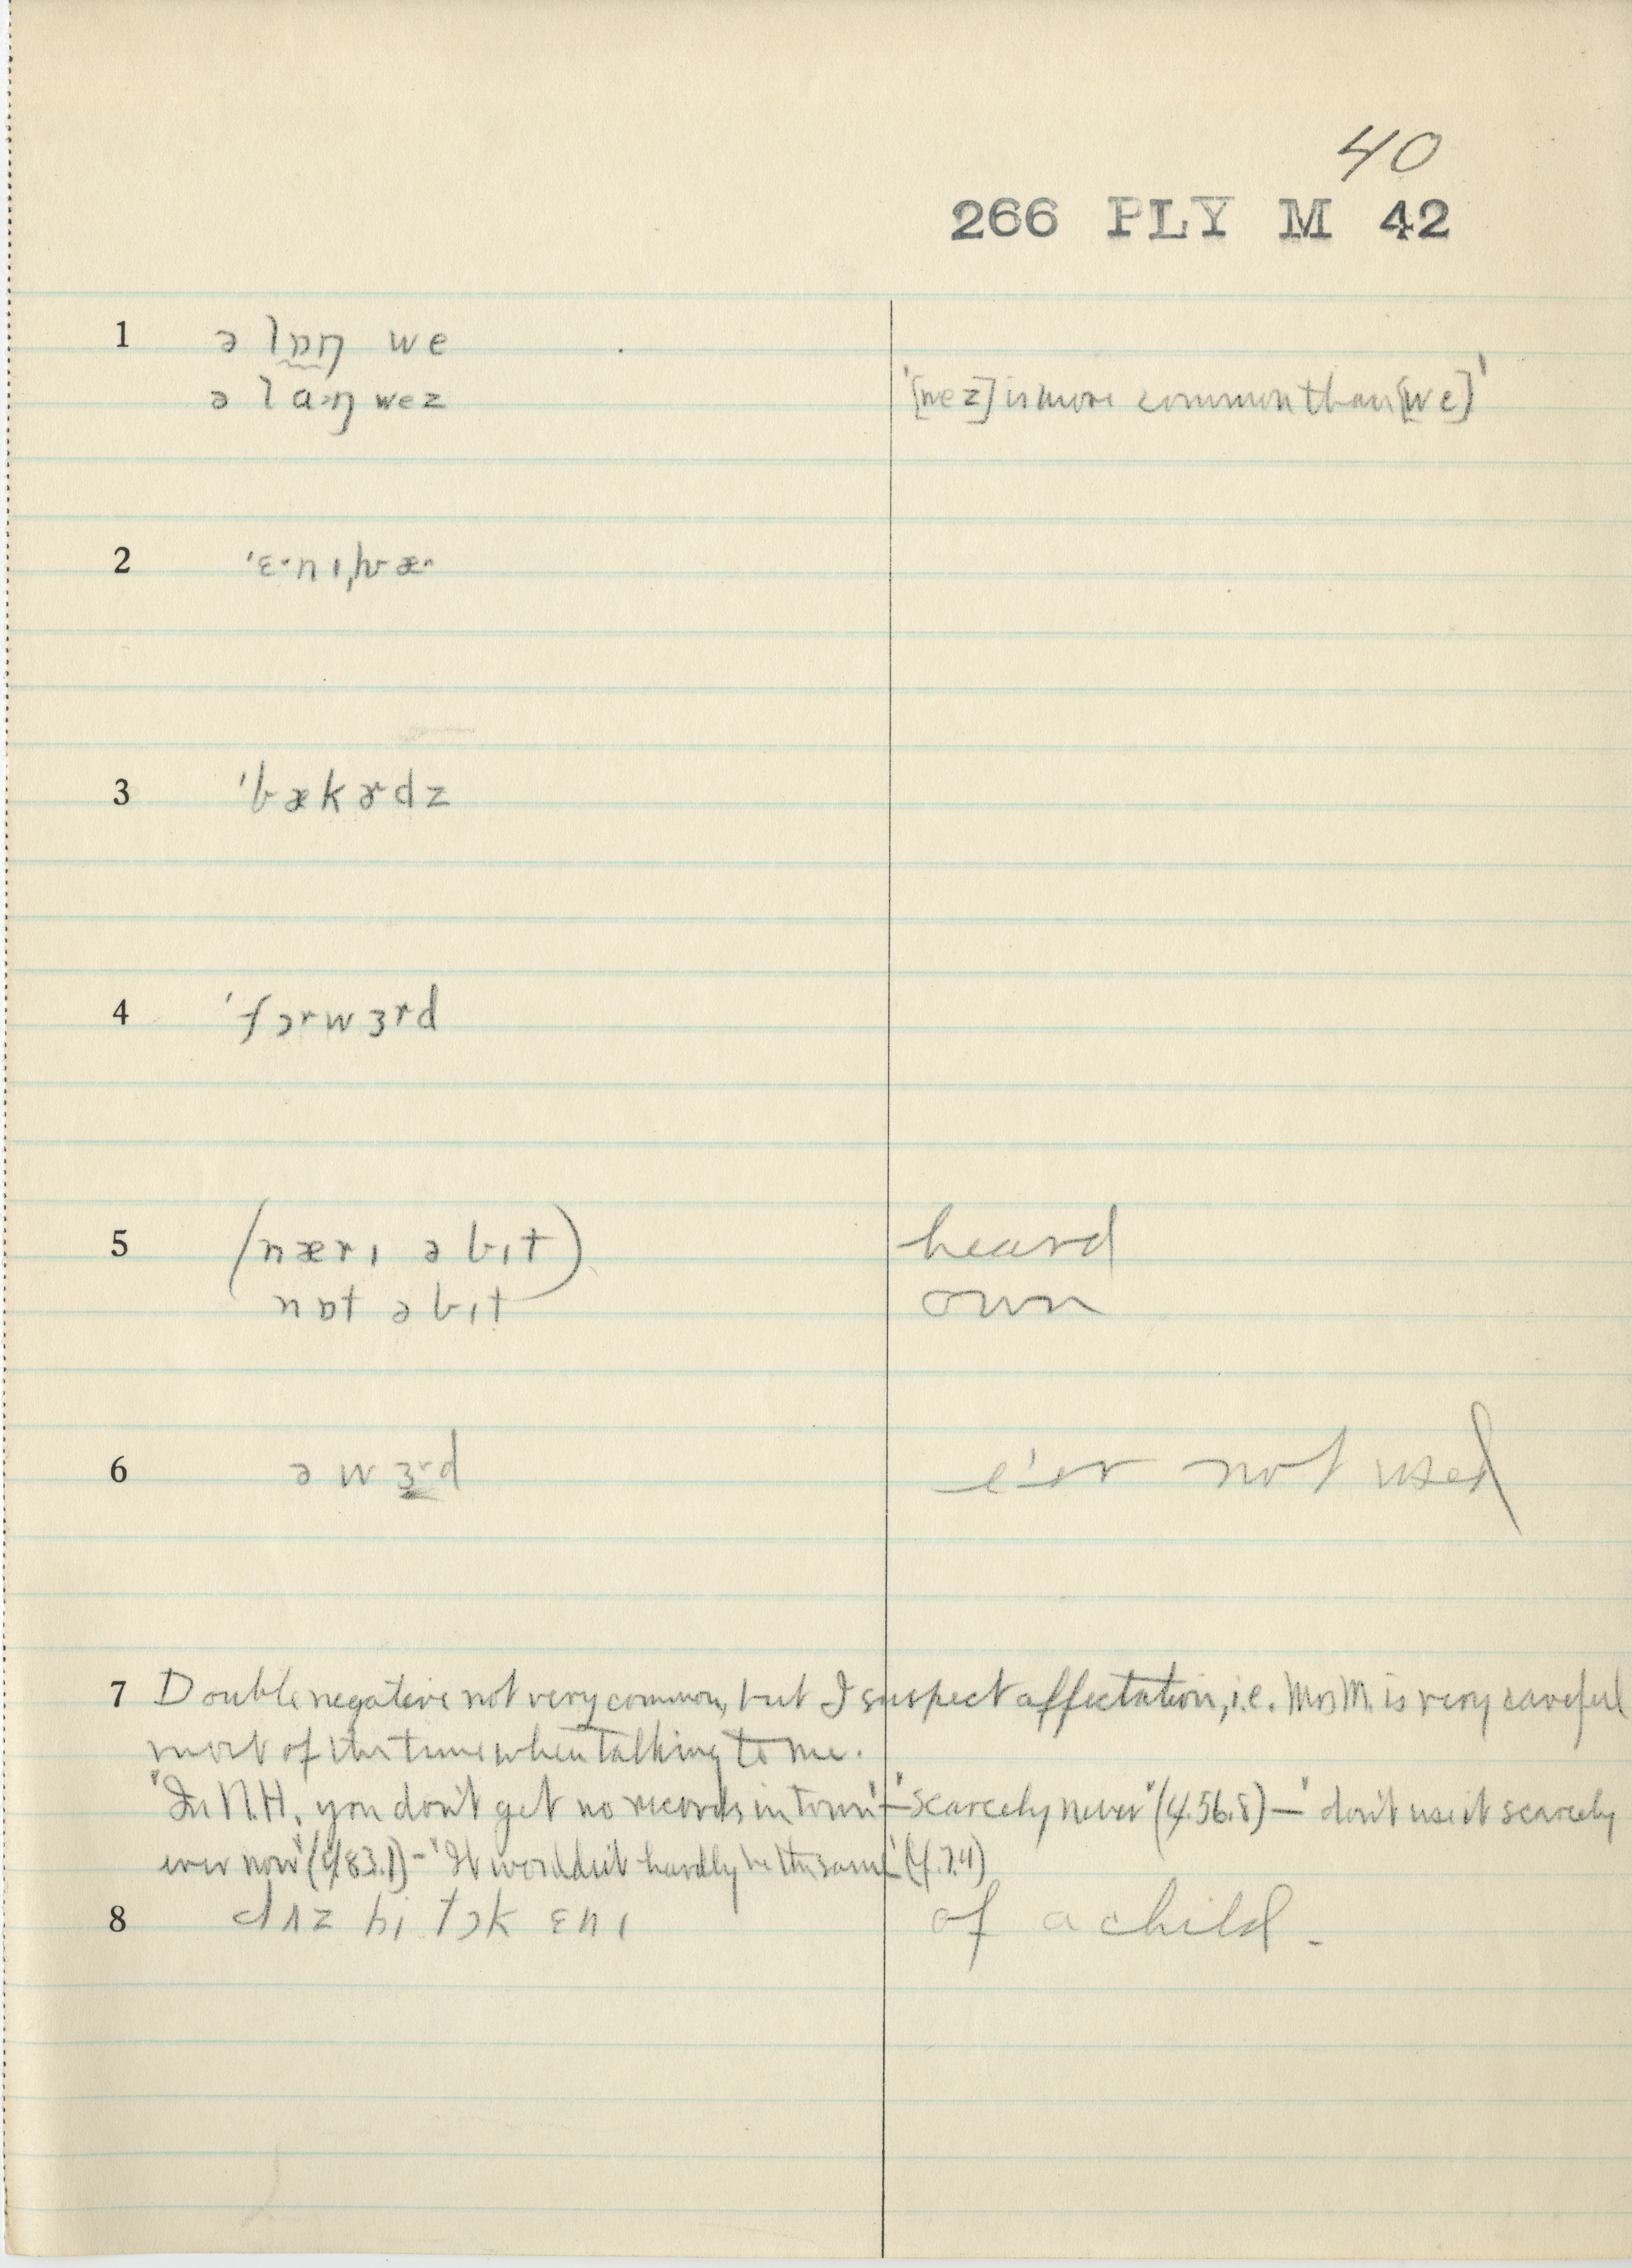 40
266 PLY M 42
1 ə lɒŋ we
ə laˑŋ wez '[wez] is more common than [we]'
2 ˈɛˑnɪˌhwæˑ
3 ˈbækɚdz
4 ˈfɔrwɜrd
5 (nærɪ ə bɪt) heard
nɒt ə bɪt own
6 ə wɜrd e'er not used
7 Double negative not very common, but I suspect affectation, i.e. Mrs M. is very careful
most of the time when talking to me.
"In N.H. you don't get no records in town" – "scarcely never" (4.56.8) – "don't use it scarcely
ever now" (4.83.1) – "It wouldn't hardly be the same" (4.7.4)
8 dʌz hi tɔk ɛnɪ of a child.